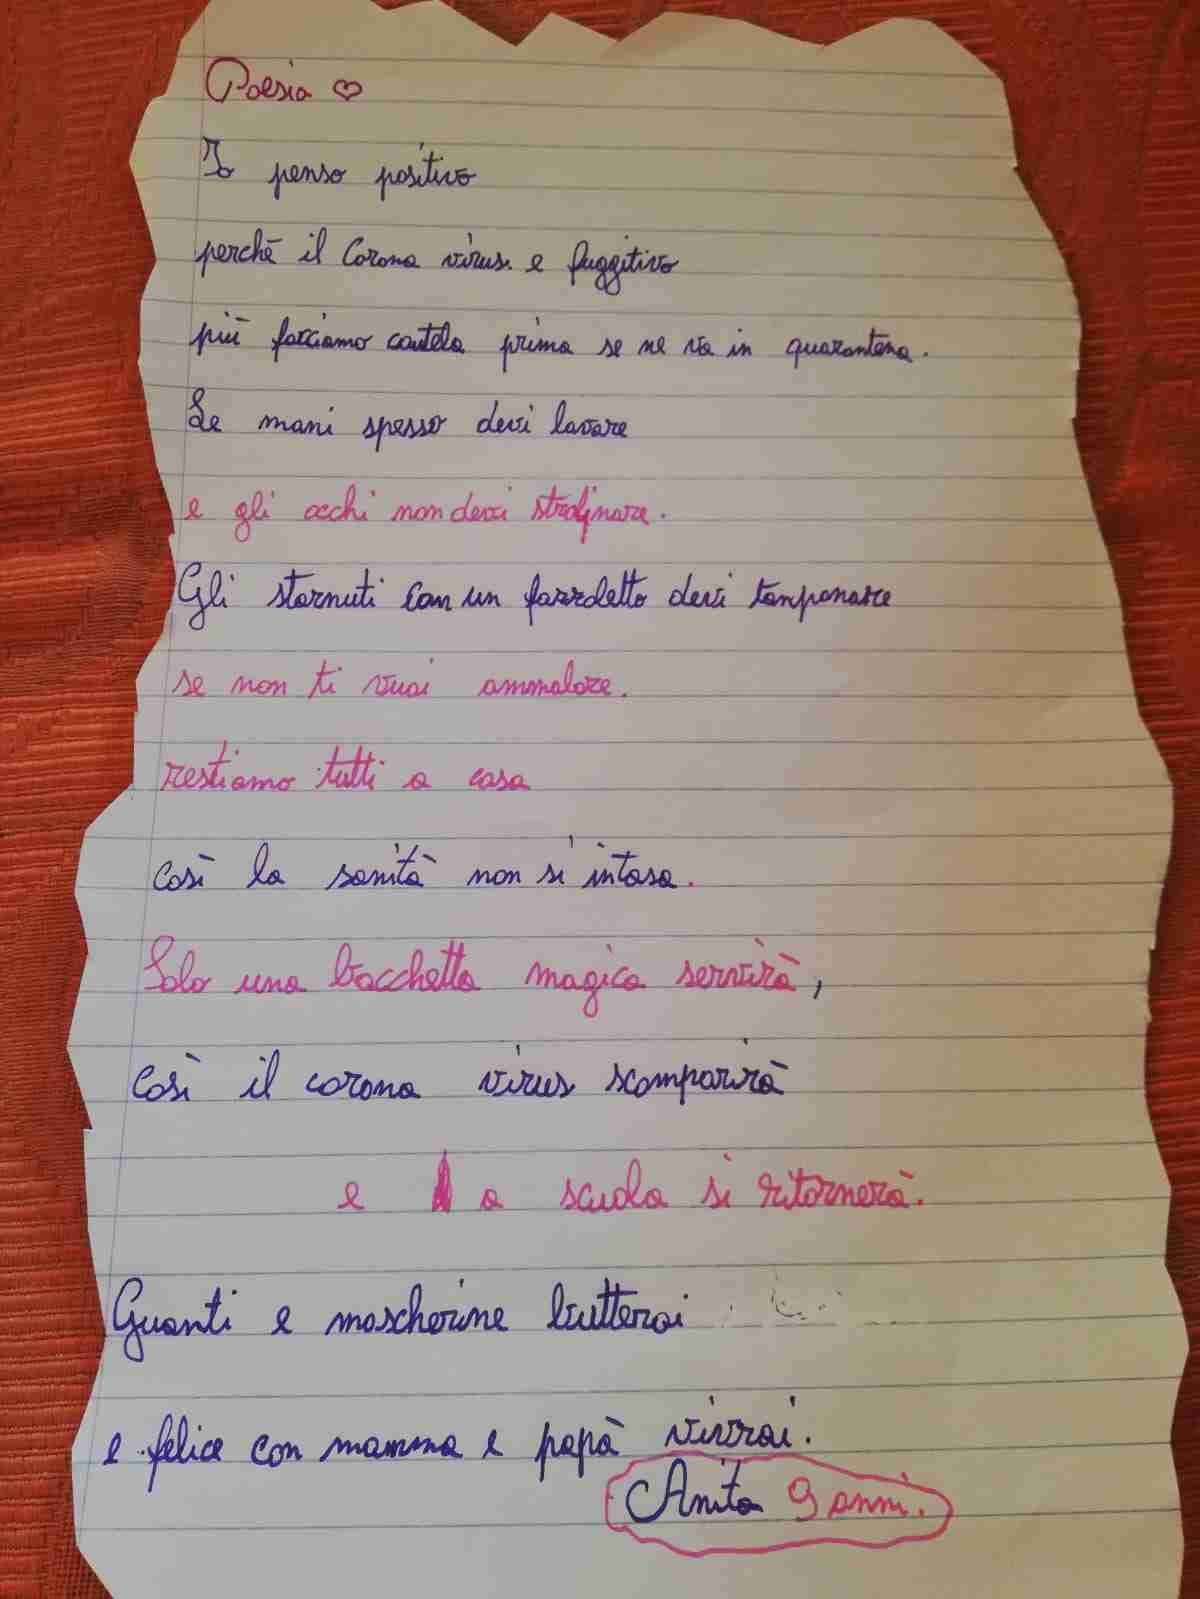 Poesia ♡
Io penso positivo
perchè il Corona virus e fuggitivo
più facciamo cautela prima se ne va in quarantena.
Le mani spesso devi lavare
e gli occhi non devi strofinare.
Gli starnuti con un fazzoletto devi tamponare
se non ti vuoi ammalare.
restiamo tutti a casa
così la sanità non si intasa.
Solo una bacchetta magica servirà,
così il corona virus scomparirà
e a scuola si ritornerà.
Guanti e mascherine butterai
e felice con mamma e papà vivrai.
Anita 9 anni.